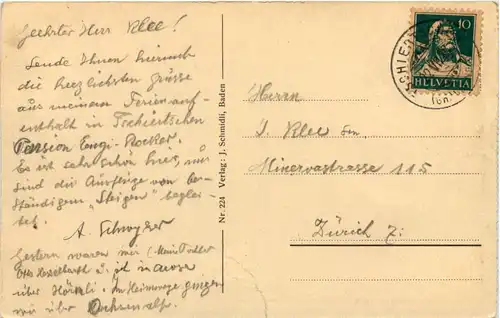 Geehrter Herr Klee!
Sende Ihnen hiermit
die herzlichsten Grüsse
aus meinem Ferienauf-
enthalt in Tschiertschen
Pension Engi-Hocker.
Es ist sehr schön hier, nur
sind die Ausflüge von be-
ständigem „Steigen" beglei-
tet.
A. Schwyzer
Gestern waren wir (Meine
u. ich in Arosa
über Hörnli. Im Heimwege gingen
wir über Ochsenalp.
Nr. 224 Verlag: J. Schmidli, Baden
10
HELVETIA
Herrn
J. Klee sen.
Minervastrasse 115
Zürich 7.